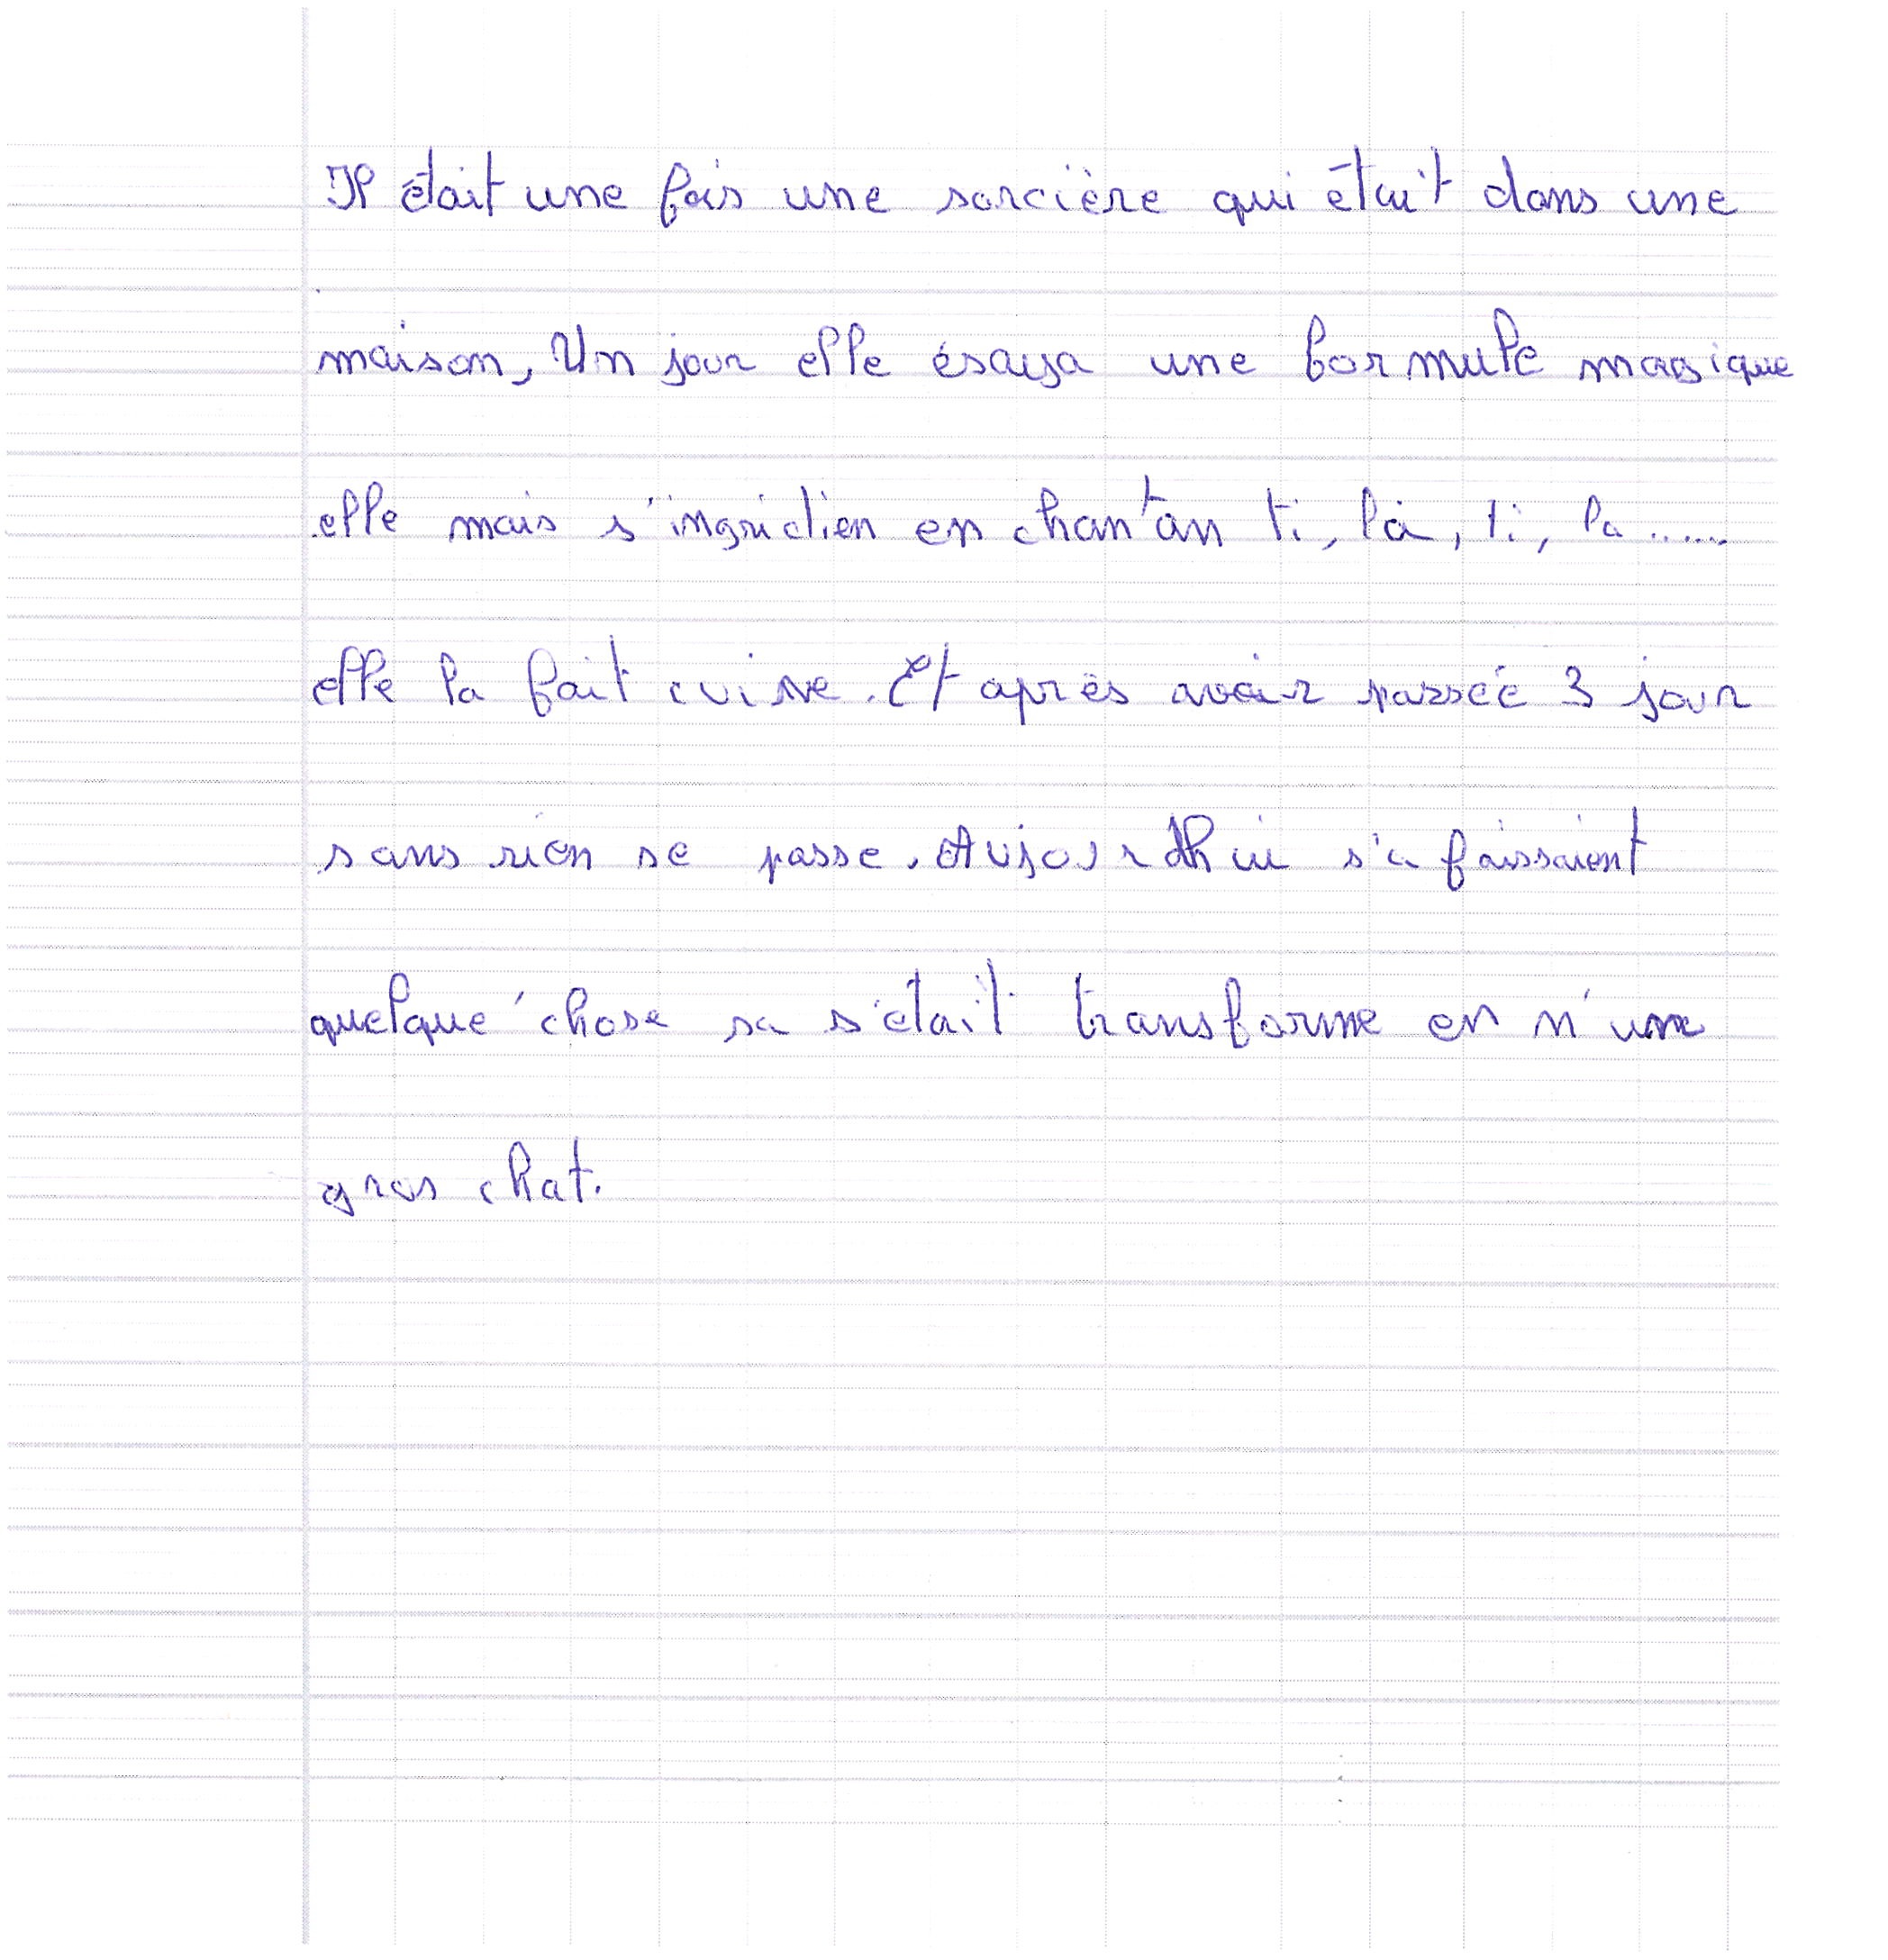 Il était une fois une sorcière qui était dans une
maison, Un jour elle ésaya une formule magique
elle mais s'ingridien en chantan ti, la, ti, la .....
elle la fait cuire. Et après avoir passée 3 jour
sans rien se passe. Aujourdhui s'a faissaient
quelque chose sa s'était transforme en n'une
gros chat.